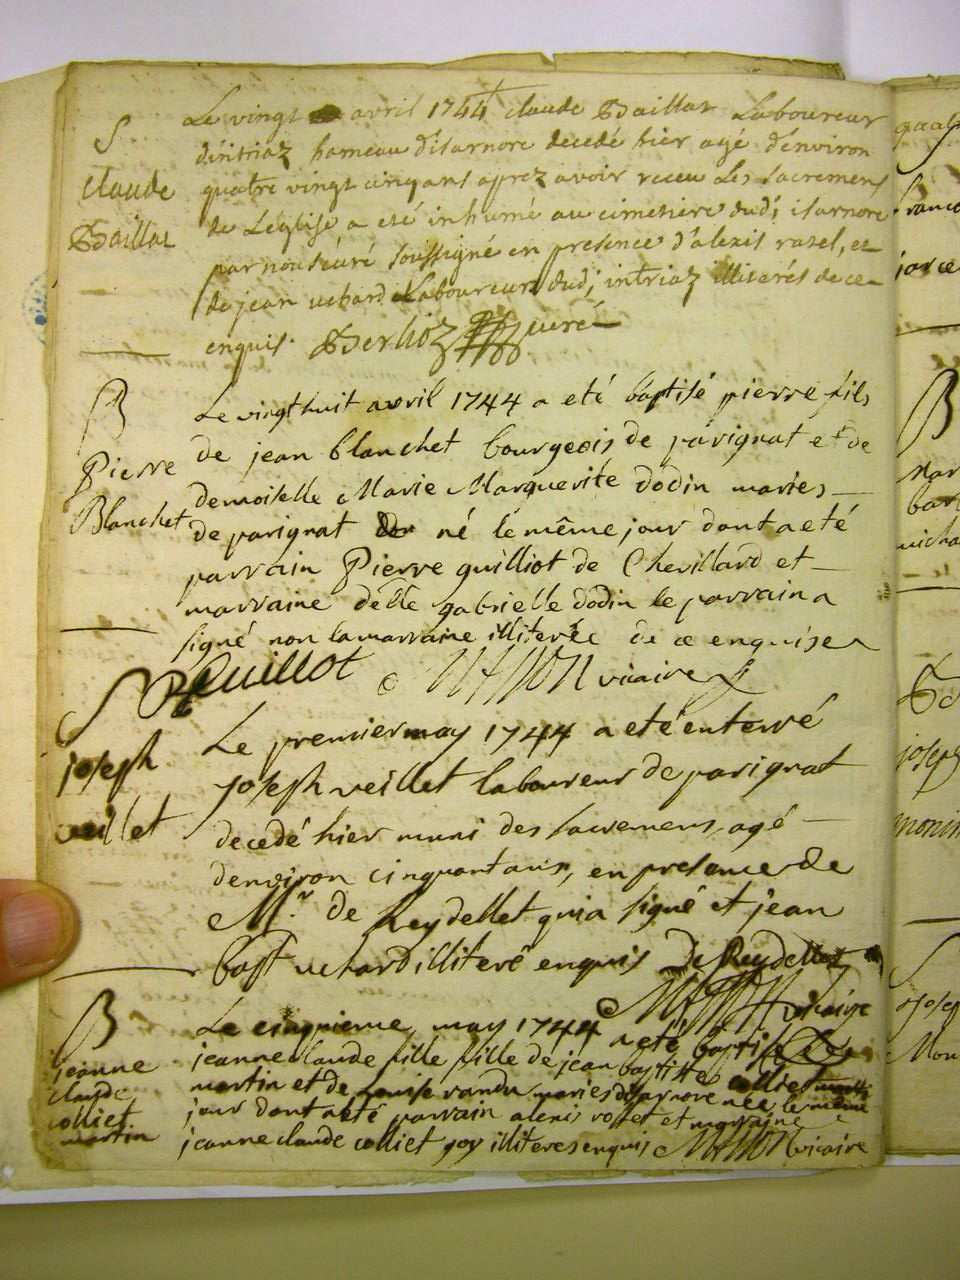 S
claude
Baillat
Le vingt avril 1744 claude Baillat Laboureur
d'intriaz hameau d'isarnore decedé hier agé d'environ
quatre vingt cinq ans aprez avoir receu Les sacremens
de L'eglise a eté inhumé au cimetiere dud; isarnore
par nous curé soussigné en presence d'alexis ravel, et
de jean uchard Laboureur dud; intriaz illiterés de ce
enquis. Berlioz curé
B
Pierre
Blanchet
Le vingt huit avril 1744 a eté baptisé pierre fils
de jean blanchet bourgeois de parignat et de
demoiselle Marie Marguerite dodin maries
de parignat né le même jour dont a eté
parrain Pierre guilliot de Chevillard et
marraine delle gabrielle dodin le parrain a
signé non la marraine illiterée de ce enquise
Guillot vicaire
S
joseph
veillet
Le premier may 1744 a eté enterré
joseph veillet laboureur de parignat
decedé hier muni des sacremens, agé
denviron cinquant ans, en presence de
Mr. de Reydellet qui a signé et jean
bapt uchard illiteré enquis De Reydellet
vicaire
B
jeanne
claude
colliet
martin
Le cinquieme may 1744 a eté baptisé
jeanne claude fille fille de jean baptiste colliet
martin et de maries disarnore née le même
jour dont a eté parrain alexis rosset et marraine
jeanne claude colliet illiteres enquis vicaire